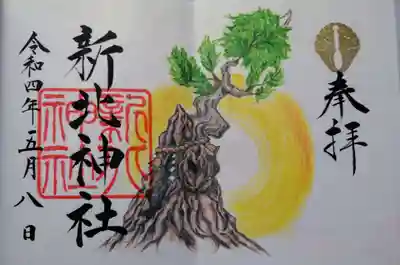 奉拝
新北神社
令和四年五月八日